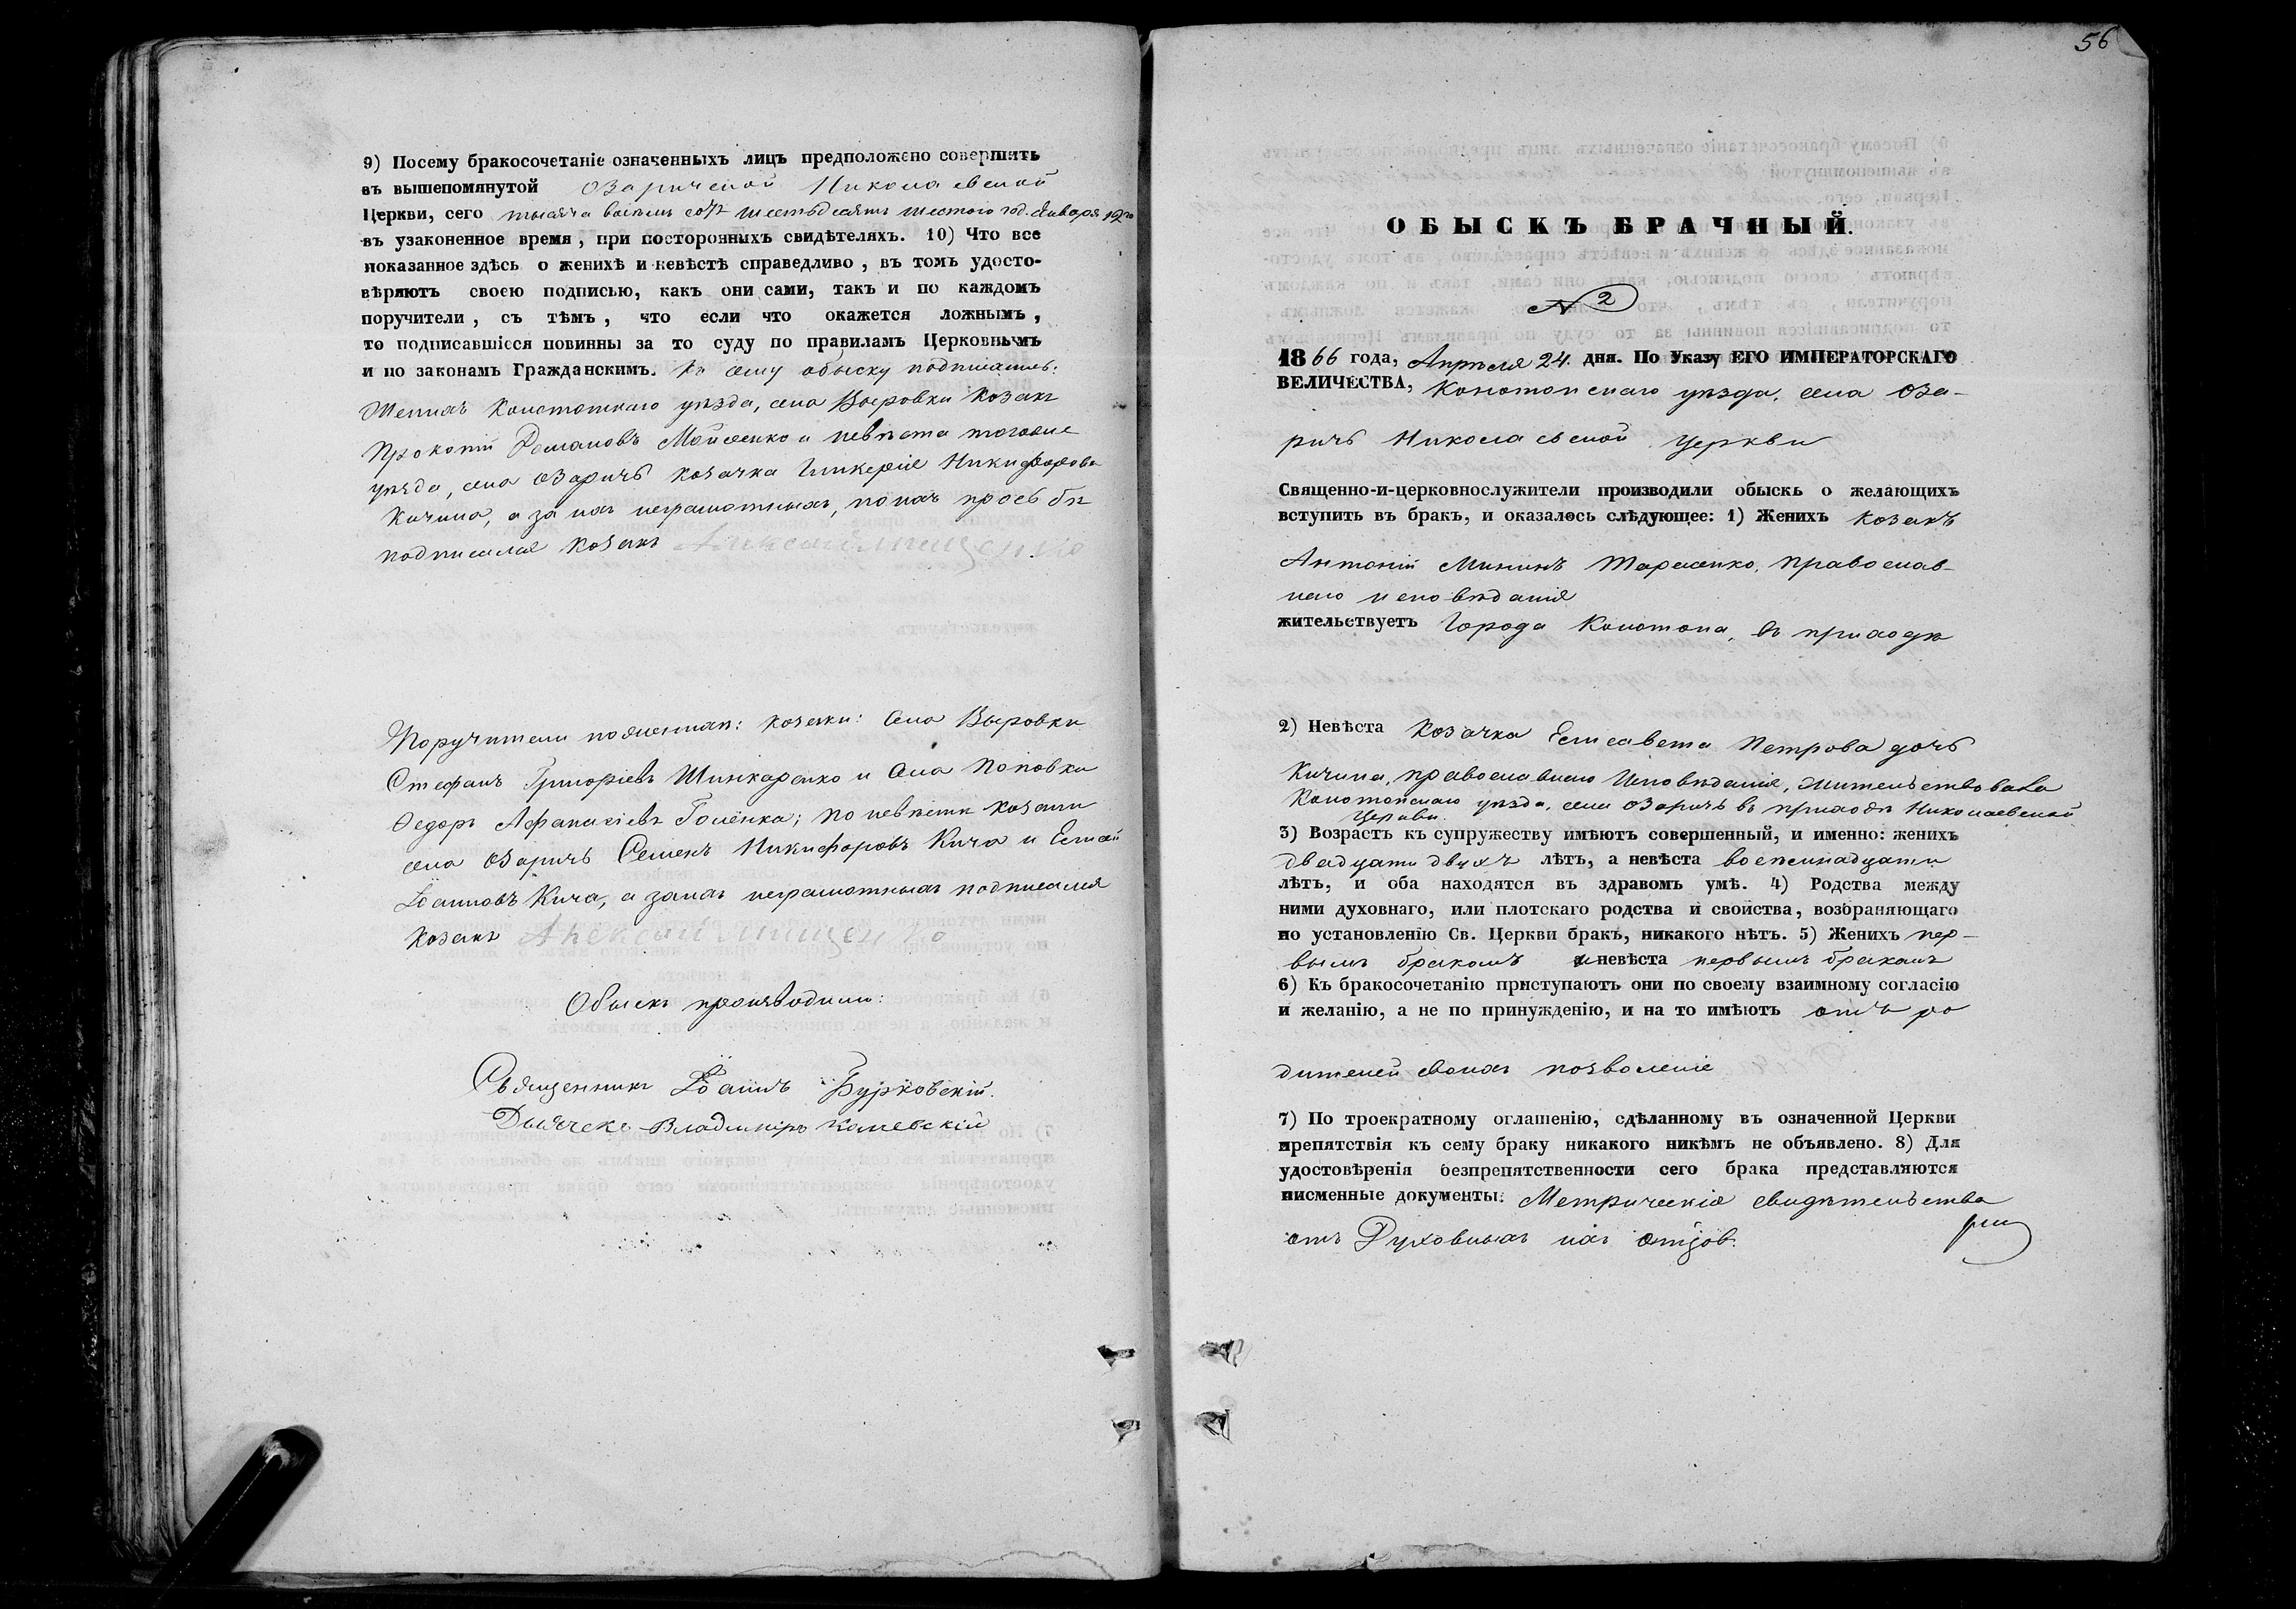 9) Посему бракосочетаніе означенныхъ лицъ предположено совершить
въ вышепомянутой Озаричской Николаевской
Церкви, сего тысяча восемь сотъ шестьдесятъ шестого год. Января 19го
въ узаконенное время, при постороннихъ свидѣтеляхъ. 10) Что все
показанное здѣсь о женихѣ и невѣстѣ справедливо, въ томъ удосто-
вѣряютъ своею подписью, какъ они сами, такъ и по каждомъ
поручители, съ тѣмъ, что если что окажется ложнымъ,
то подписавшіеся повинны за то суду по правиламъ Церковнымъ
и по законамъ Гражданскимъ. Къ сему обыску подписались:
Женихъ Конотопскаго уѣзда, села Выровки Козакъ
Прокопій Романовъ Мойсеенко и невѣста тогоже
уѣзда, села Озаричъ козачка Гликерія Никифорова
Кичина, а за нихъ неграмотныхъ, по ихъ прозьбѣ
подписался козакъ Алексей Мищенко
Поручители по женихѣ: козаки: Села Выровки
Стефанъ Григоріевъ Шинкаренко и Села Поповки
Ѳедоръ Афанасіевъ Голёнка; по невѣстѣ козаки
села Озаричъ Семенъ Никифоровъ Кича и Елисей
Іоанновъ Кича, а за нихъ неграмотныхъ подписался
Козакъ Алексей Мищенко
Обыскъ производили:
Священникъ Іоаннъ Бурковскій.
Дьячекъ Владиміръ Каневскій
56
ОБЫСКЪ БРАЧНЫЙ.
N 2
1866 года, Апреля 24. дня. По Указу ЕГО ИМПЕРАТОРСКАГО
ВЕЛИЧЕСТВА, Конотопскаго уѣзда, села Оза-
ричъ Николаевской Церкви
Священно-и-церковнослужители производили обыскъ о желающихъ
вступить въ бракъ, и оказалось слѣдующее: 1) Женихъ Козакъ
Антоній Мининъ Тарасенко, православ-
наго исповѣданія
жительствуетъ Города Конотопа, въ приходѣ
2) Невѣста Козачка Елисавета Петрова дочь
Кичина, православнаго Исповѣданія, Жительствовала
Конотопскаго уѣзда, села Озаричъ въ приходѣ Николаевской
Церкви.
3) Возрастъ къ супружеству имѣютъ совершенный, и именно: женихъ
двадцати двухъ лѣтъ, а невѣста восемнадцати
лѣтъ, и оба находятся въ здравомъ умѣ. 4) Родства между
ними духовнаго, или плотскаго родства и свойства, возбраняющаго
по установленію Св. Церкви бракъ, никакого нѣтъ. 5) Женихъ пер-
вымъ бракомъ и невѣста первымъ бракомъ
6) Къ бракосочетанію приступаютъ они по своему взаимному согласію
и желанію, а не по принужденію, и на то имѣютъ отъ ро
дителей своихъ позволеніе
7) По троекратному оглашенію, сдѣланному въ означенной Церкви
препятствія къ сему браку никакого никѣмъ не объявлено. 8) Для
удостовѣренія безпрепятственности сего брака представляются
писменные документы: Метрическія свидѣтельства
отъ Духовныхъ ихъ отцов.